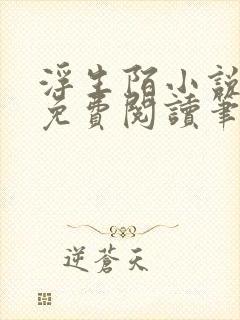 浮生陌小說
免費閱讀筆
逆蒼天